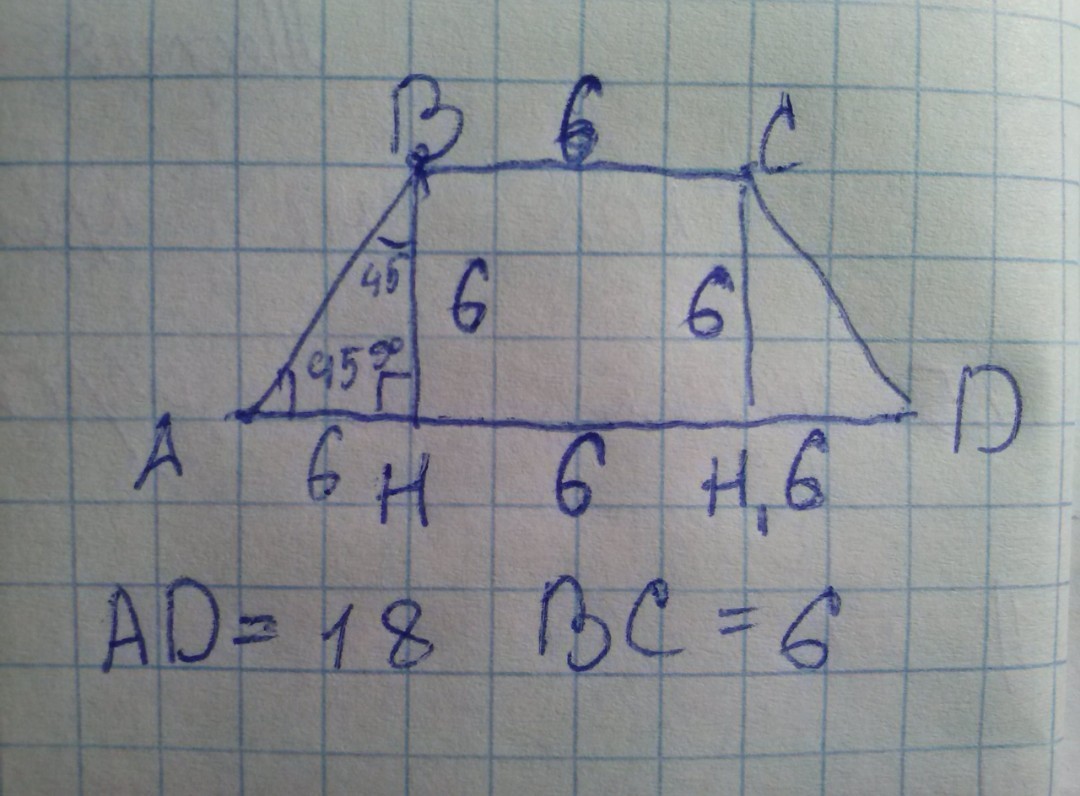 B 6 C
45 6 6
45 90
A 6 H 6 H₁ 6 D
AD = 18 BC = 6